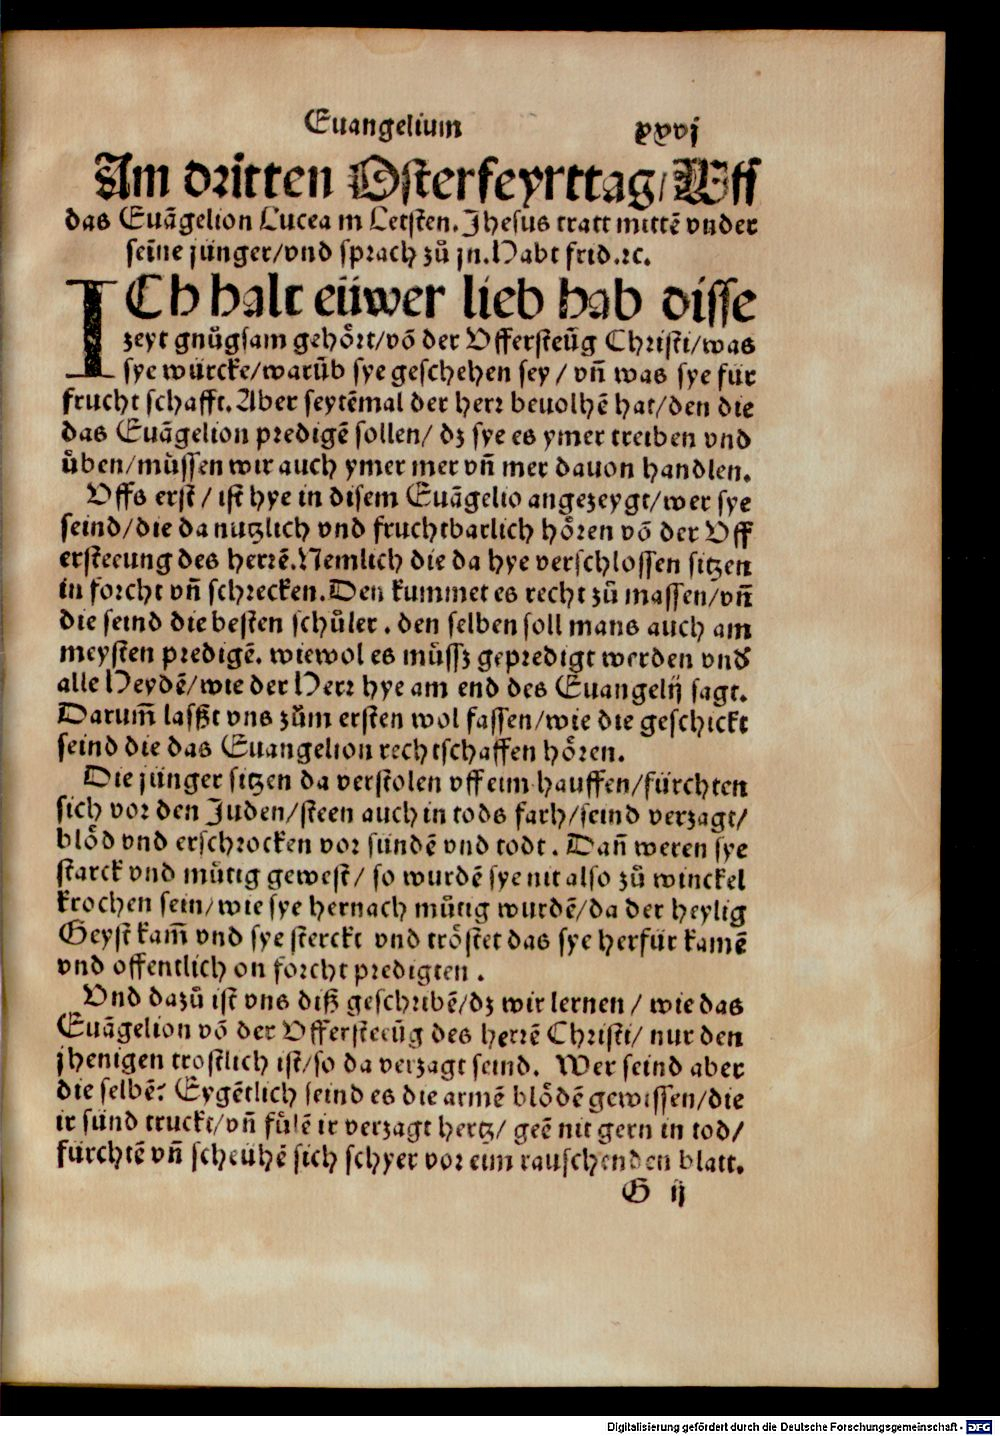 Euangelium xxvj
Am dritten Osterfeyrttag/ Vff
das Euãgelion Lucea m Letsten. Jhesus tratt mittẽ vnder
seine jünger/vnd sprach zů jn. Habt frid.ꝛc.
ICh halt eüwer lieb hab disse
zeyt gnůgsam gehoͤrt/võ der Vffersteũg Christi/was
sye würcke/warũb sye geschehen sey / vñ was sye für
frucht schafft. Aber seytẽmal der herr beuolhẽ hat/den die
das Euãgelion predigẽ sollen/ dz sye es ymer treiben vnd
uͤben/muͤssen wir auch ymer mer vñ mer dauon handlen.
Vffs erst / ist hye in disem Euãgelio angezeygt/wer sye
seind/die da nutzlich vnd fruchtbarlich hoͤren võ der Vff
ersteeung des herrẽ. Nemlich die da hye verschlossen sitzen
in forcht vñ schrecken. Den kummet es recht zů massen/vñ
die seind die besten schuͤler . den selben soll mans auch am
meysten predigẽ. wiewol es muͤssz gepredigt werden vnď
alle Heydẽ/wie der Herr hye am end des Euangelij sagt.
Darum̃ lasßt vns zům ersten wol fassen/wie die geschickt
seind die das Euangelion rechtschaffen hoͤren.
Die jünger sitzen da verstolen vff eim hauffen/fürchten
sich vor den Juden/steen auch in tods farh/seind verzagt/
bloͤd vnd erschrocken vor sündẽ vnd todt . Dañ weren sye
starck vnd můtig gewest/ so wurdẽ sye nit also zů winckel
krochen sein/wie sye hernach můtig wurdẽ/da der heylig
Geyst kam̃ vnd sye sterckt vnd troͤstet das sye herfür kamẽ
vnd offentlich on forcht predigten .
Vnd dazů ist vns diß geschribẽ/dz wir lernen / wie das
Euãgelion võ der Vffersteeũg des herrẽ Christi/ nur den
jhenigen trostlich ist/so da verzagt seind. Wer seind aber
die selbẽ? Eygẽtlich seind es die armẽ bloͤdẽ gewissen/die
ir sünd truckt/vñ fuͤlẽ ir verzagt hertz/ geẽ nit gern in tod/
fürchtẽ vñ scheühẽ sich schyer vor eim rauschenden blatt.
G ij
Digitalisierung gefördert durch die Deutsche Forschungsgemeinschaft - DFG